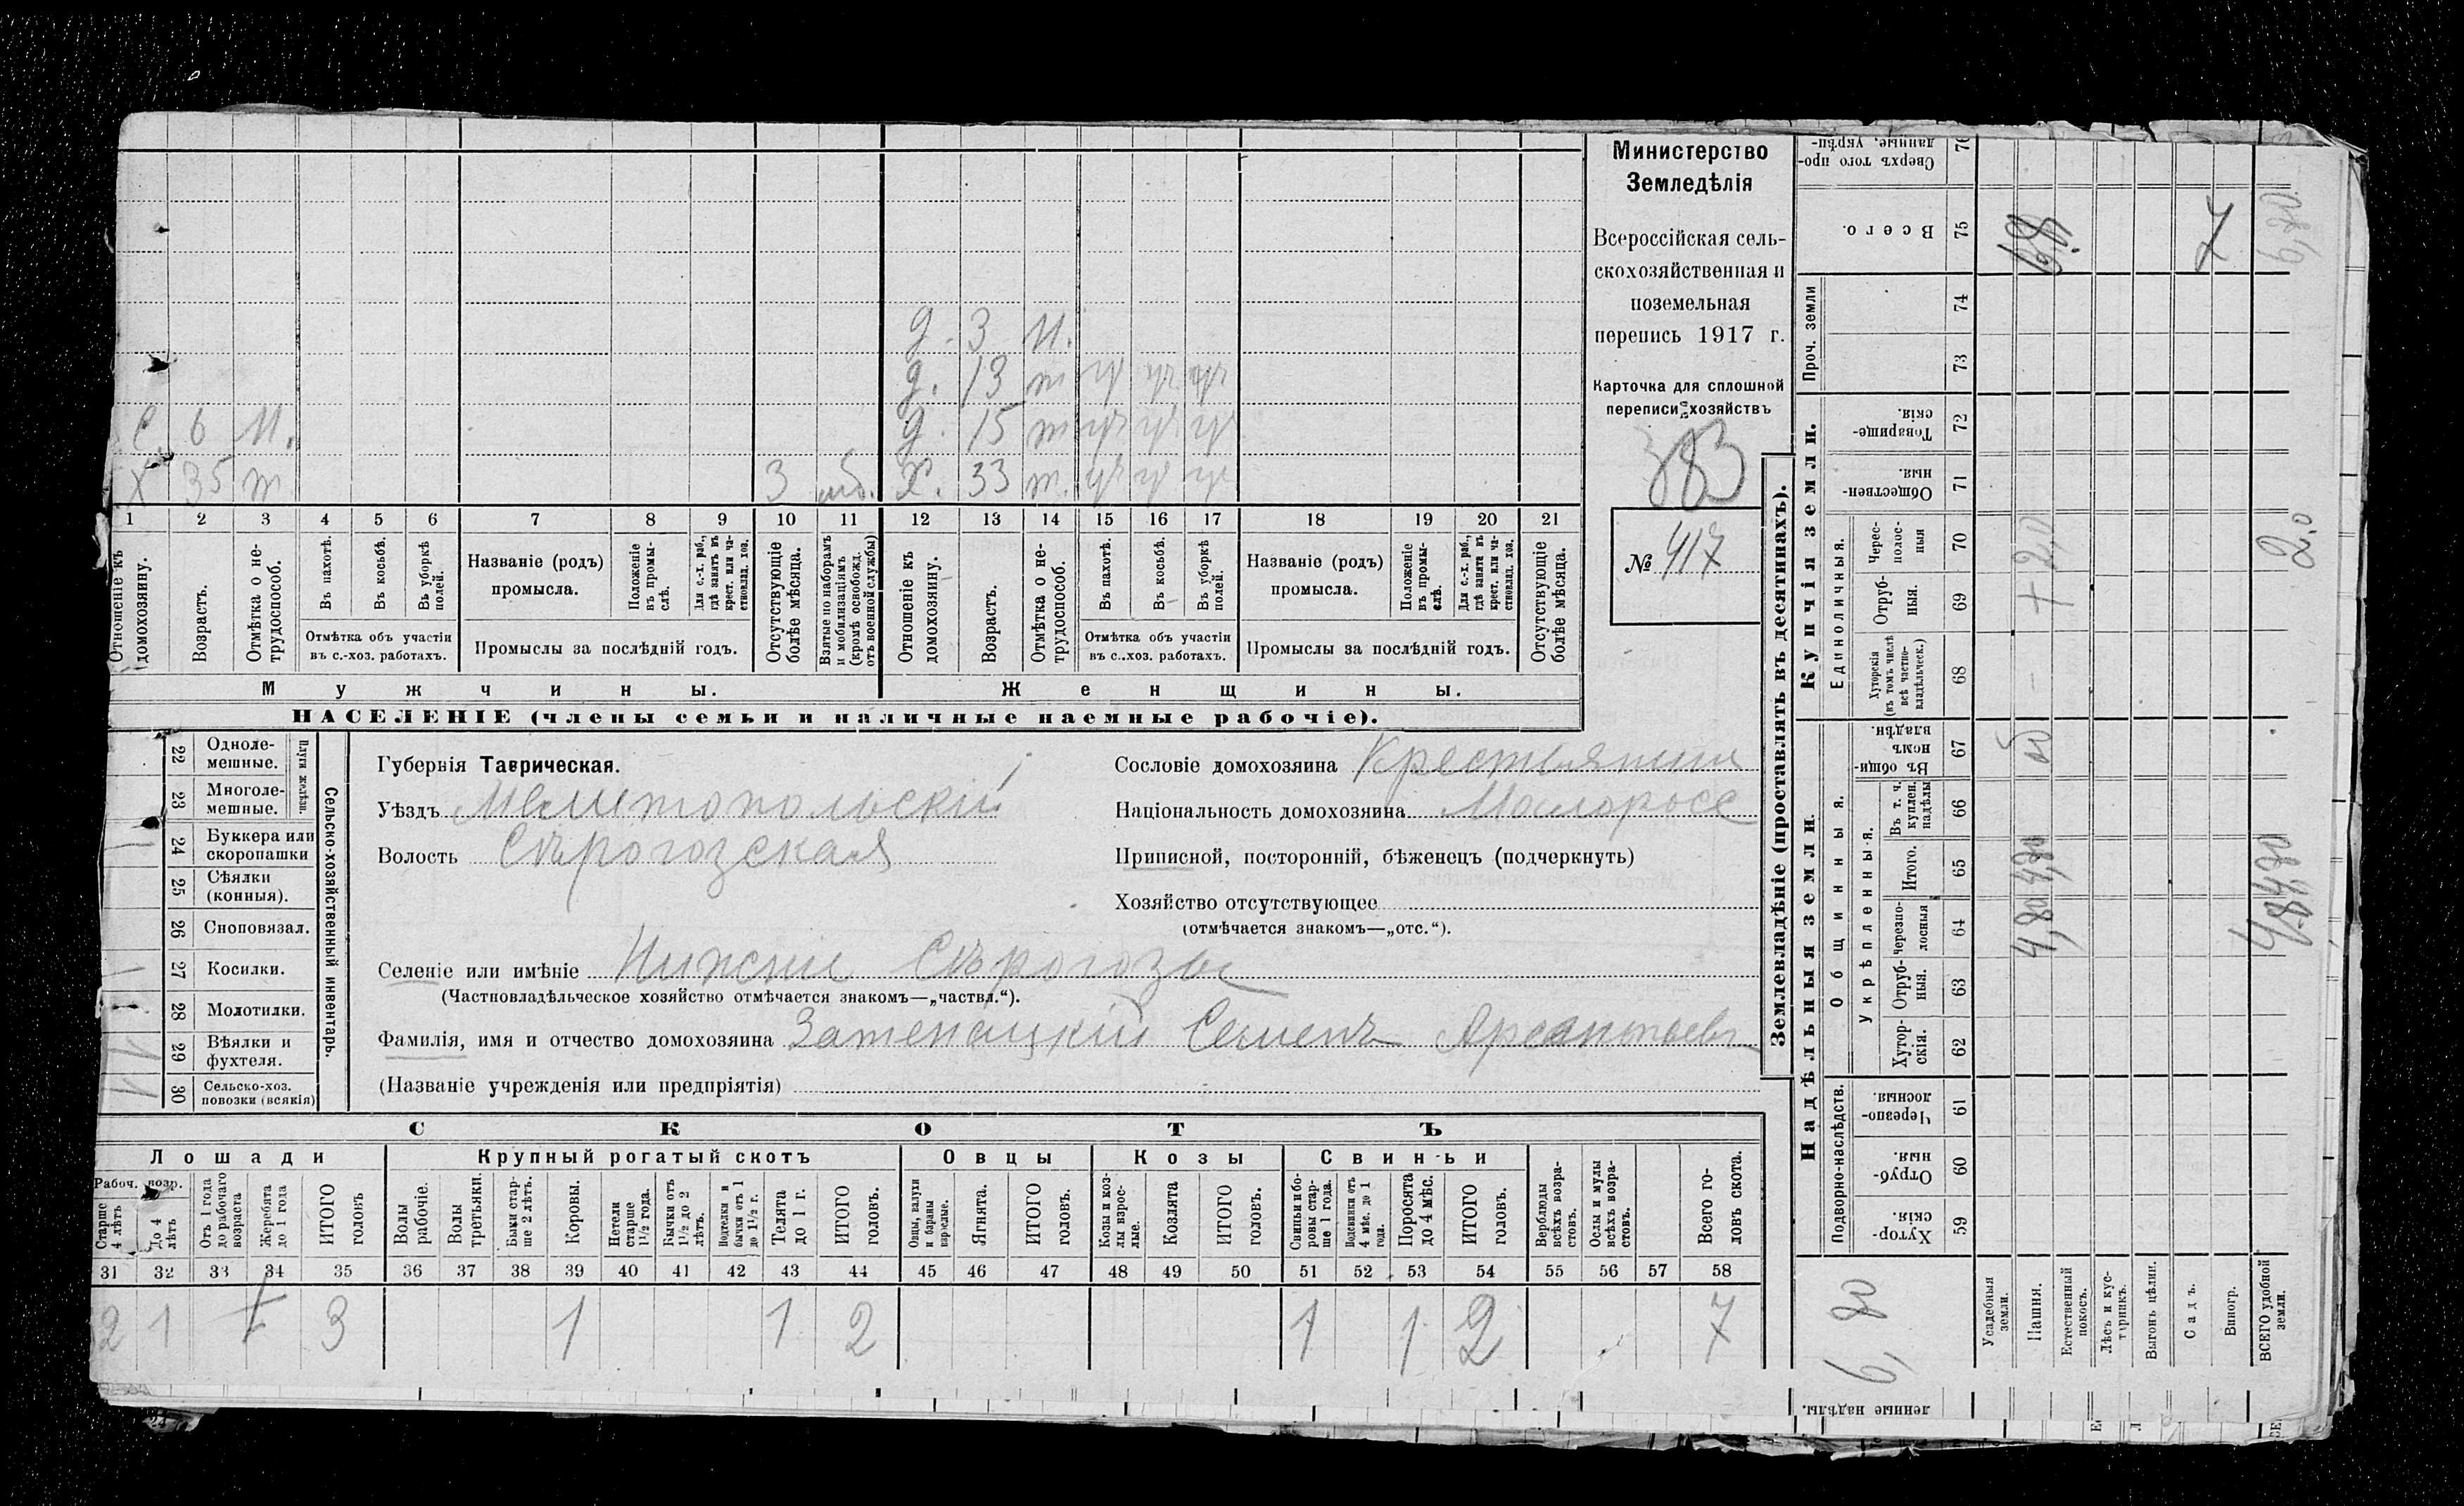 д. 3 н.
д. 13 т уч уч уч
С. 6 н. д. 15 т уч уч уч
Х 35 т 3 моб. х. 33 т. уч уч уч
1 2 3 4 5 6 7 8 9 10 11 12 13 14 15 16 17 18 19 20 21
Отношеніе къ домохозяину.
Возрастъ.
Отмѣтка о не-трудоспособ.
Въ пахотѣ.
Въ косьбѣ.
Въ уборкѣ полей.
Отмѣтка объ участіи
въ с.-хоз. работахъ.
Названіе (родъ)
промысла.
Положеніе въ промы-слѣ.
Для с.-х. раб., гдѣ занятъ въ крест. или ча-стновлад. хоз.
Промыслы за послѣдній годъ.
Отсутствующіе болѣе мѣсяца.
Взятые по наборамъ и мобилизаціямъ (кромѣ освобожд. отъ военной службы)
Отношеніе къ домохозяину.
Возрастъ.
Отмѣтка о не-трудоспособ.
Въ пахотѣ.
Въ косьбѣ.
Въ уборкѣ полей.
Отмѣтка объ участіи
въ с.-хоз. работахъ.
Названіе (родъ)
промысла.
Положеніе въ промы-слѣ.
Для с.-х. раб., гдѣ занята въ крест. или ча-стновлад. хоз.
Промыслы за послѣдній годъ.
Отсутствующіе болѣе мѣсяца.
Мужчины. Женщины.
НАСЕЛЕНІЕ (члены семьи и наличные наемные рабочіе).
Министерство
Земледѣлія
Всероссійская сель-
скохозяйственная и
поземельная
перепись 1917 г.
Карточка для сплошной
переписи хозяйствъ
383
№ 417
Сельско-хозяйственный инвентарь.
Плуги желѣзн.
22 Одноле-мешные.
23 Многоле-мешные.
24 Буккера или скоропашки 1
25 Сѣялки (конныя).
26 Сноповязал.
27 Косилки. 1
28 Молотилки.
29 Вѣялки и фухтеля.
30 Сельско-хоз. повозки (всякія)
Губернія Таврическая.
Уѣздъ Мелитопольскій
Волость Сѣрогозская
Сословіе домохозяина Крестьянин
Національность домохозяина Малоросс
Приписной, посторонній, бѣженецъ (подчеркнуть)
Хозяйство отсутствующее
(отмѣчается знакомъ—„отс.“).
Селеніе или имѣніе Нижние Сѣрогозы
(Частновладѣльческое хозяйство отмѣчается знакомъ—„частвл.“).
Фамилія, имя и отчество домохозяина Семенъ
(Названіе учрежденія или предпріятія)
СКОТЪ
Лошади Крупный рогатый скотъ Овцы Козы Свиньи
Рабоч. возр.
Старше 4 лѣтъ
До 4 лѣтъ
Отъ 1 года до рабочаго возраста
Жеребята до 1 года
ИТОГО головъ
Волы рабочіе.
Волы третьяки.
Быки стар-ше 2 лѣтъ.
Коровы.
Нетели старше 1½ года.
Бычки отъ 1½ до 2 лѣтъ.
Подтелки и бычки отъ 1 до 1½ г.
Телята до 1 г.
ИТОГО головъ.
Овцы, валухи и бараны взрослые.
Ягнята.
ИТОГО головъ.
Козы и коз-лы взрос-лые.
Козлята
ИТОГО головъ.
Свиньи и бо-ровы стар-ше 1 года.
Подсвинки отъ 4 мѣс. до 1 года.
Поросята до 4 мѣс.
ИТОГО головъ.
Верблюды всѣхъ возра-стовъ.
Ослы и мулы всѣхъ возра-стовъ.
Всего го-ловъ скота.
31 32 33 34 35 36 37 38 39 40 41 42 43 44 45 46 47 48 49 50 51 52 53 54 55 56 57 58
2 1 3 1 1 2 1 1 2 7
Землевладѣніе (проставлять въ десятинахъ).
Надѣльныя земли.
Купчія земли.
Проч. земли
Подворно-наслѣдств.
Общинныя.
Укрѣпленныя.
Единоличныя.
Хутор-скія. 59
Отруб-ныя. 60
Черезпо-лосныя 61
Хутор-скія. 62
Отруб-ныя. 63
Черезпо-лосныя 64
Итого. 65
Въ т. ч. куплен. надѣлы 66
Въ общи-номъ владѣн. 67
Хуторскія (въ томъ числѣ всѣ частно-владѣльческ.) 68
Отруб-ныя. 69
Черес-полос-ныя 70
Обществен-ныя 71
Товарище-скія. 72
73
74
Всего. 75
Сверхъ того про-данные, укрѣп-
76
ленные надѣлы.
6,80
Усадебныя земли.
Пашня. 4,80 4,80 об + 2,0 6,8
Естественный покосъ.
Лѣсъ и кус-тарникъ.
Выгонъ цѣлин.
Садъ.
Виногр. 7
ВСЕГО удобной земли. 4,8 4,80 2,0 6,80